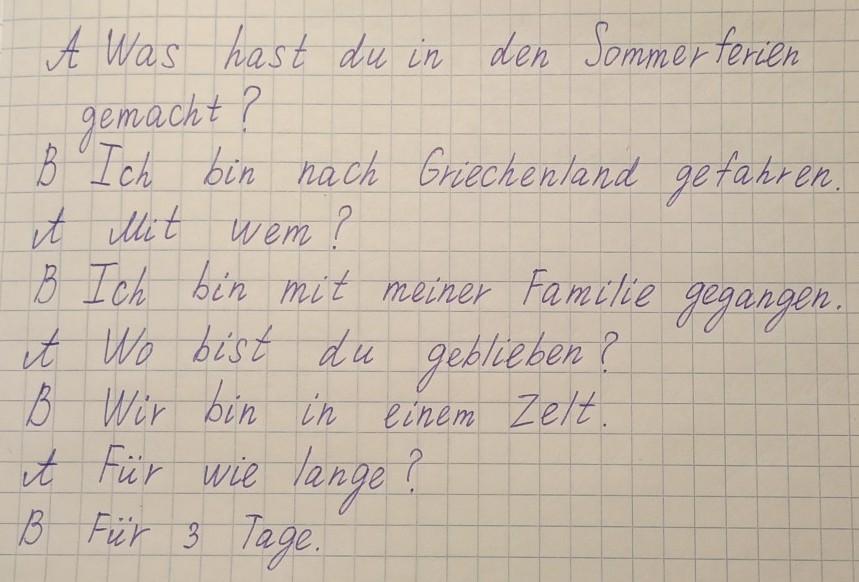 A Was hast du in den Sommerferien
gemacht?
B Ich bin nach Griechenland gefahren.
A Mit wem?
B Ich bin mit meiner Familie gegangen.
A Wo bist du geblieben?
B Wir bin in einem Zelt.
A Für wie lange?
B Für 3 Tage.